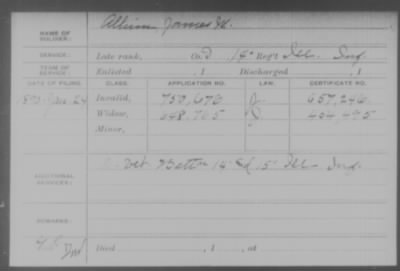 NAME OF SOLDIER: Allison James M.
SERVICE: Late rank, Co. D 14" Reg't Ill. Inf.
TERM OF SERVICE: Enlisted , 1 Discharged , 1
DATE OF FILING. CLASS. APPLICATION NO. LAW. CERTIFICATE NO.
Jan 24 Invalid, 750,676 657,246
Widow, 648,765 454,495
Minor,
ADDITIONAL SERVICES: Vet. Battn 14" & 15" Ill. Inf.
REMARKS:
Died , 1 , at